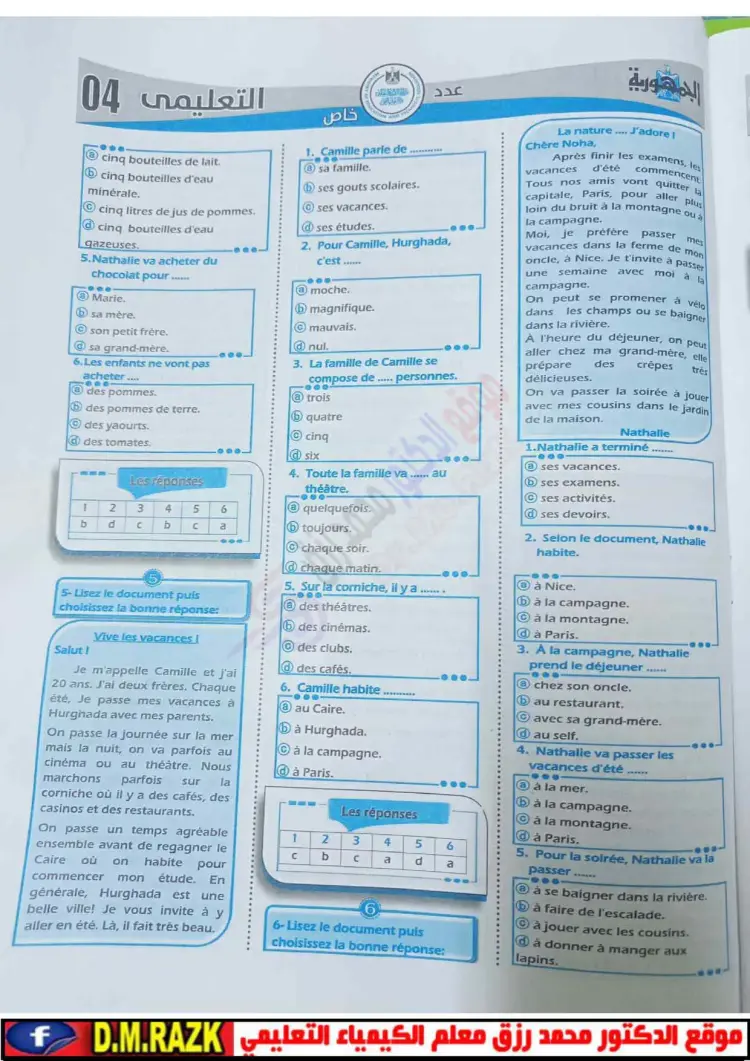 04
التعليمى
عدد
خاص
الجمهورية
ⓐ cinq bouteilles de lait.
ⓑ cinq bouteilles d'eau
minérale.
ⓒ cinq litres de jus de pommes.
ⓓ cinq bouteilles d'eau
gazeuses.
5.Nathalie va acheter du
chocolat pour ......
ⓐ Marie.
ⓑ sa mère.
ⓒ son petit frère.
ⓓ sa grand-mère.
6.Les enfants ne vont pas
acheter ....
ⓐ des pommes.
ⓑ des pommes de terre.
ⓒ des yaourts.
ⓓ des tomates.
Les réponses
1 2 3 4 5 6
b d c b c a
5
5- Lisez le document puis
choisissez la bonne réponse:
Vive les vacances !
Salut !
Je m'appelle Camille et j'ai
20 ans. J'ai deux frères. Chaque
été, Je passe mes vacances à
Hurghada avec mes parents.
On passe la journée sur la mer
mais la nuit, on va parfois au
cinéma ou au théâtre. Nous
marchons parfois sur la
corniche où il y a des cafés, des
casinos et des restaurants.
On passe un temps agréable
ensemble avant de regagner le
Caire où on habite pour
commencer mon étude. En
générale, Hurghada est une
belle ville! Je vous invite à y
aller en été. Là, il fait très beau.
1. Camille parle de ..........
ⓐ sa famille.
ⓑ ses gouts scolaires.
ⓒ ses vacances.
ⓓ ses études.
2. Pour Camille, Hurghada,
c'est ......
ⓐ moche.
ⓑ magnifique.
ⓒ mauvais.
ⓓ nul.
3. La famille de Camille se
compose de ..... personnes.
ⓐ trois
ⓑ quatre
ⓒ cinq
ⓓ six
4. Toute la famille va ...... au
théâtre.
ⓐ quelquefois.
ⓑ toujours.
ⓒ chaque soir.
ⓓ chaque matin.
5. Sur la corniche, il y a ...... .
ⓐ des théâtres.
ⓑ des cinémas.
ⓒ des clubs.
ⓓ des cafés.
6. Camille habite ..........
ⓐ au Caire.
ⓑ à Hurghada.
ⓒ à la campagne.
ⓓ à Paris.
Les réponses
1 2 3 4 5 6
c b c a d a
6
6- Lisez le document puis
choisissez la bonne réponse:
La nature .... J'adore !
Chère Noha,
Après finir les examens, les
vacances d'été commencent.
Tous nos amis vont quitter la
capitale, Paris, pour aller plus
loin du bruit à la montagne ou à
la campagne.
Moi, je préfère passer mes
vacances dans la ferme de mon
oncle, à Nice. Je t'invite à passer
une semaine avec moi à la
campagne.
On peut se promener à vélo
dans les champs ou se baigner
dans la rivière.
À l'heure du déjeuner, on peut
aller chez ma grand-mère, elle
prépare des crêpes très
délicieuses.
On va passer la soirée à jouer
avec mes cousins dans le jardin
de la maison.
Nathalie
1.Nathalie a terminé .......
ⓐ ses vacances.
ⓑ ses examens.
ⓒ ses activités.
ⓓ ses devoirs.
2. Selon le document, Nathalie
habite.
ⓐ à Nice.
ⓑ à la campagne.
ⓒ à la montagne.
ⓓ à Paris.
3. À la campagne, Nathalie
prend le déjeuner ......
ⓐ chez son oncle.
ⓑ au restaurant.
ⓒ avec sa grand-mère.
ⓓ au self.
4. Nathalie va passer les
vacances d'été ......
ⓐ à la mer.
ⓑ à la campagne.
ⓒ à la montagne.
ⓓ à Paris.
5. Pour la soirée, Nathalie va la
passer ......
ⓐ à se baigner dans la rivière.
ⓑ à faire de l'escalade.
ⓒ à jouer avec les cousins.
ⓓ à donner à manger aux
lapins.
f D.M.RAZK موقع الدكتور محمد رزق معلم الكيمياء التعليمي